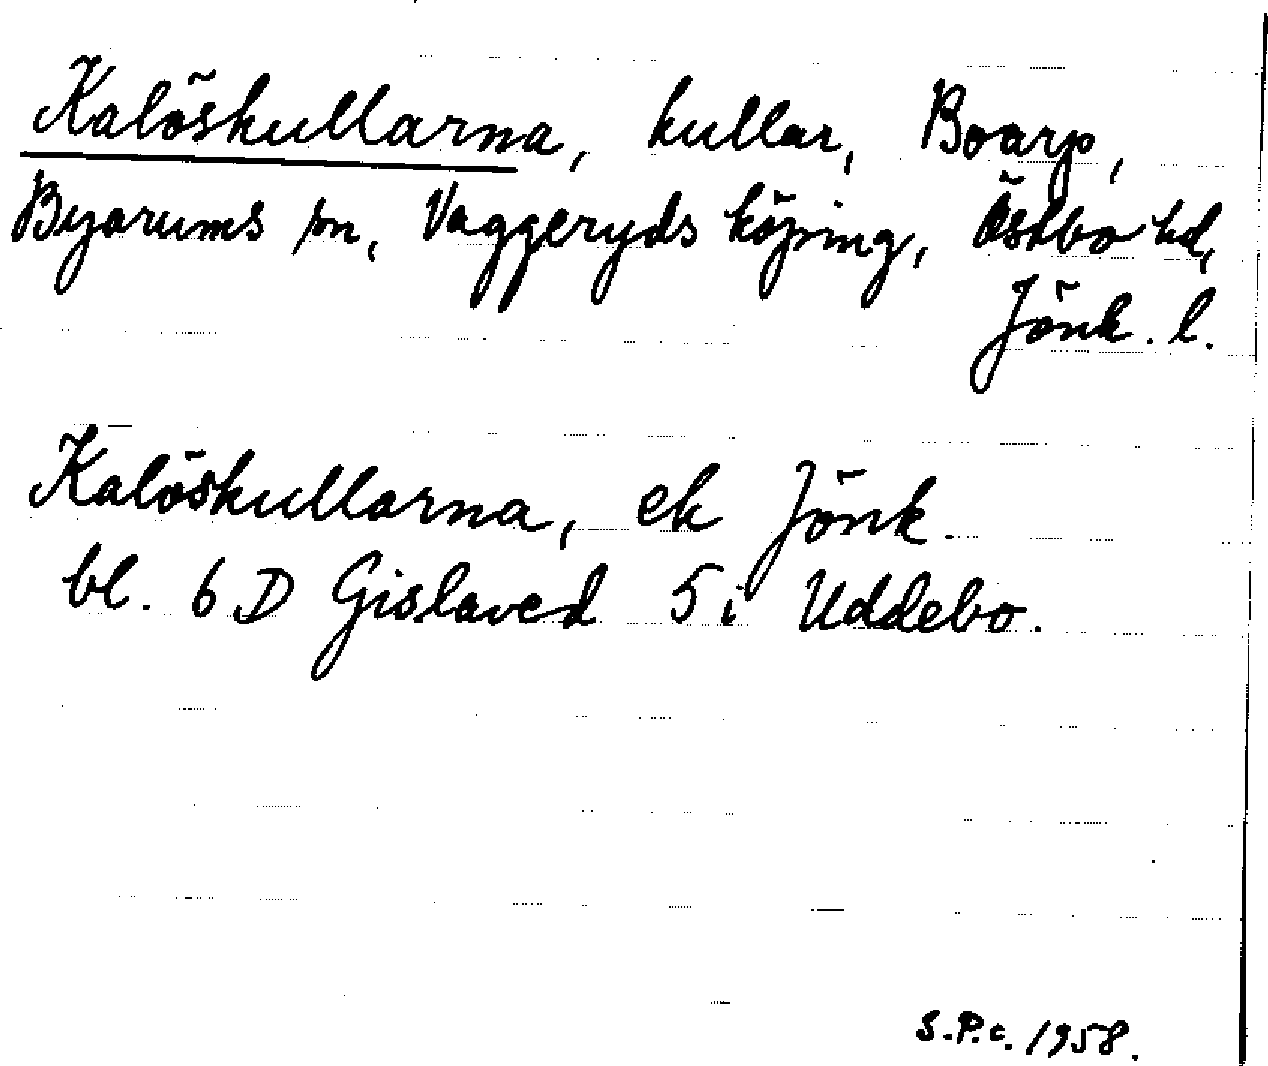 Kalöskullarna, kullar, Boarp,
Byarums sn, Vaggeryds köping, Östbo hd,
Jönk. l.
Kalöskullarna, ek Jönk.
bl. 6 D Gislaved 5 i Uddebo.
S.P.c. 1958.